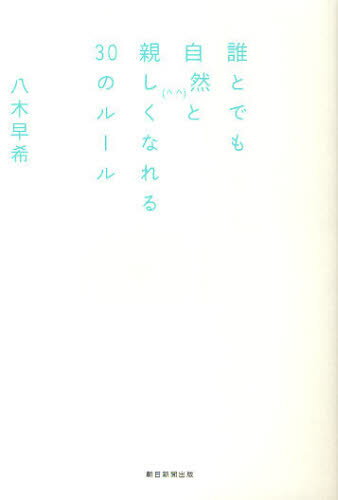 誰とでも
自然と
(^.^)
親しくなれる
30のルール
八木早希
朝日新聞出版